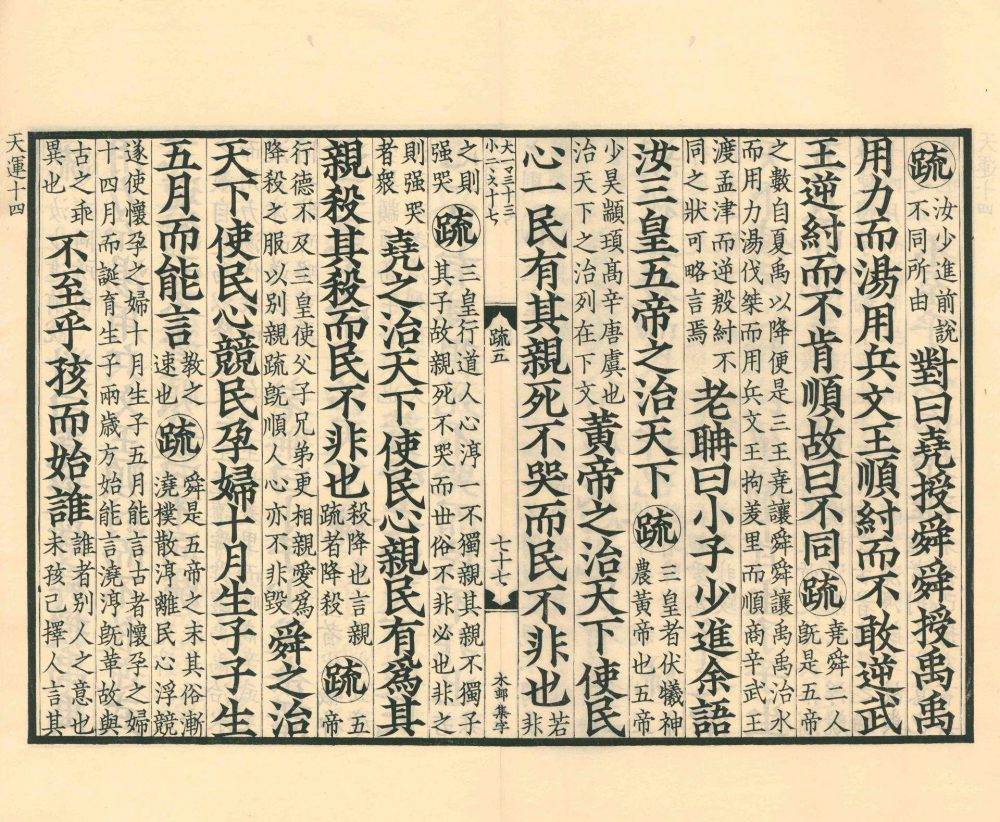 疏汝少進前說不同所由對曰堯授舜舜授禹禹
用力而湯用兵文王順紂而不敢逆武
王逆紂而不肯順故曰不同疏堯舜二人旣是五帝
之數自夏禹以降便是三王堯讓舜舜讓禹禹治水
而用力湯伐桀而用兵文王拘羑里而順商辛武王
渡孟津而逆殷紂不同之狀可略言焉老聃曰小子少進余語
汝三皇五帝之治天下疏三皇者伏犧神農黃帝也五帝
少昊顓頊髙辛唐虞也治天下之治列在下文黃帝之治天下使民
心一民有其親死不哭而民不非也若非
疏五
七十七
木郵集字
之則强哭疏三皇行道人心淳一不獨親其親不獨子其子故親死不哭而世俗不非必也非之
則强哭者衆堯之治天下使民心親民有爲其
親殺其殺而民不非也殺降也言親疏者降殺疏五帝
行德不及三皇使父子兄弟更相親愛爲降殺之服以別親疏旣順人心亦不非毀舜之治
天下使民心競民孕婦十月生子子生
五月而能言教之速也疏舜是五帝之末其俗漸澆樸散淳離民心浮競
遂使懷孕之婦十月生子五月能言古者懷孕之婦
十四月而誕育生子兩歲方始能言澆淳旣革故與
古之乖異也不至乎孩而始誰誰者別人之意也未孩己擇人言其
天運十四